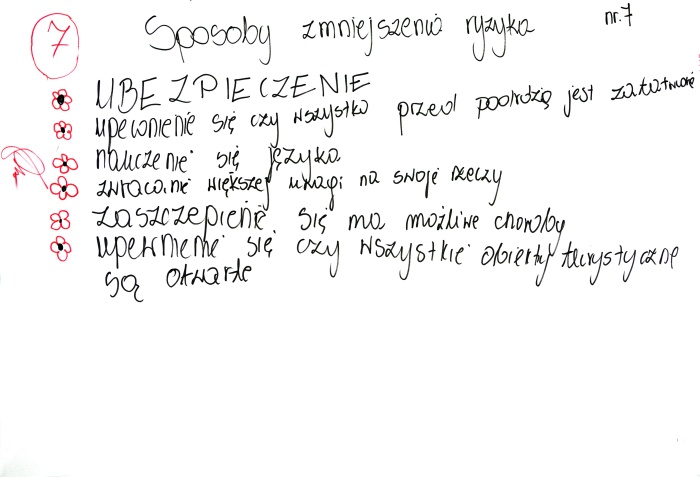 7 Sposoby zmniejszenia ryzyka nr.7
UBEZPIECZENIE
upewnienie się czy wszystko przed podróżą jest załatwione
nauczenie się języka
zwracanie większej uwagi na swoje rzeczy
zaszczepienie się na możliwe choroby
upewnienie się czy wszystkie obiekty turystyczne
są otwarte